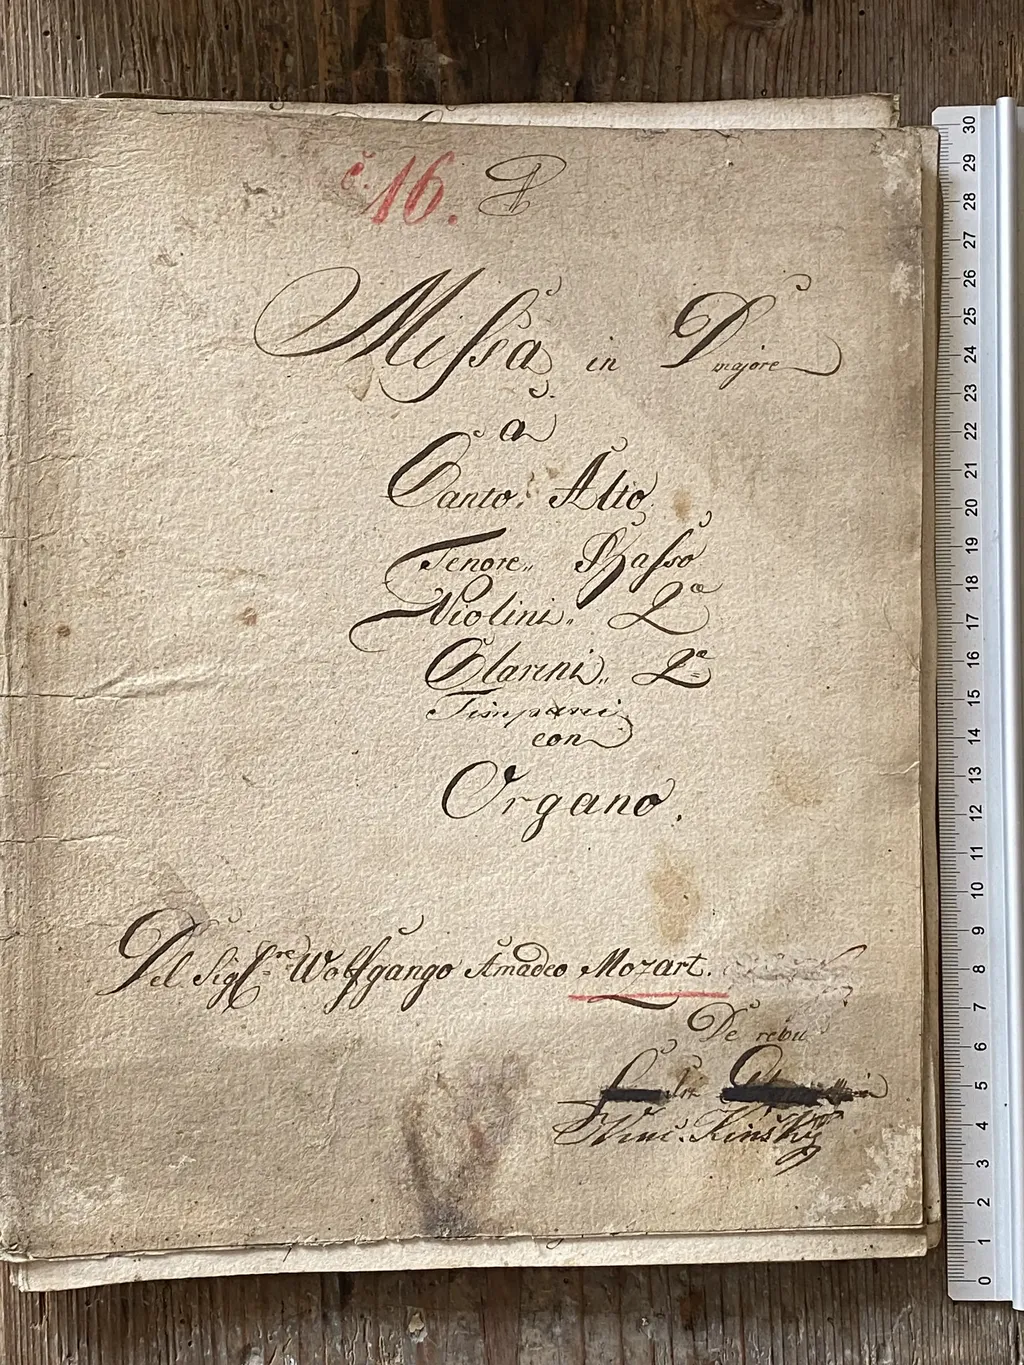 č. 16.
Missa in D majore
a
Canto, Alto
Tenore,, Basso
Violini,, 2ᵒ
Clarini,, 2ᵒ
Timpani
con
Organo.
Del Sigʳᵉ Wolfgango Amadeo Mozart.
De rebu
Vinc. Kinský
30
29
28
27
26
25
24
23
22
21
20
19
18
17
16
15
14
13
12
11
10
9
8
7
6
5
4
3
2
1
0